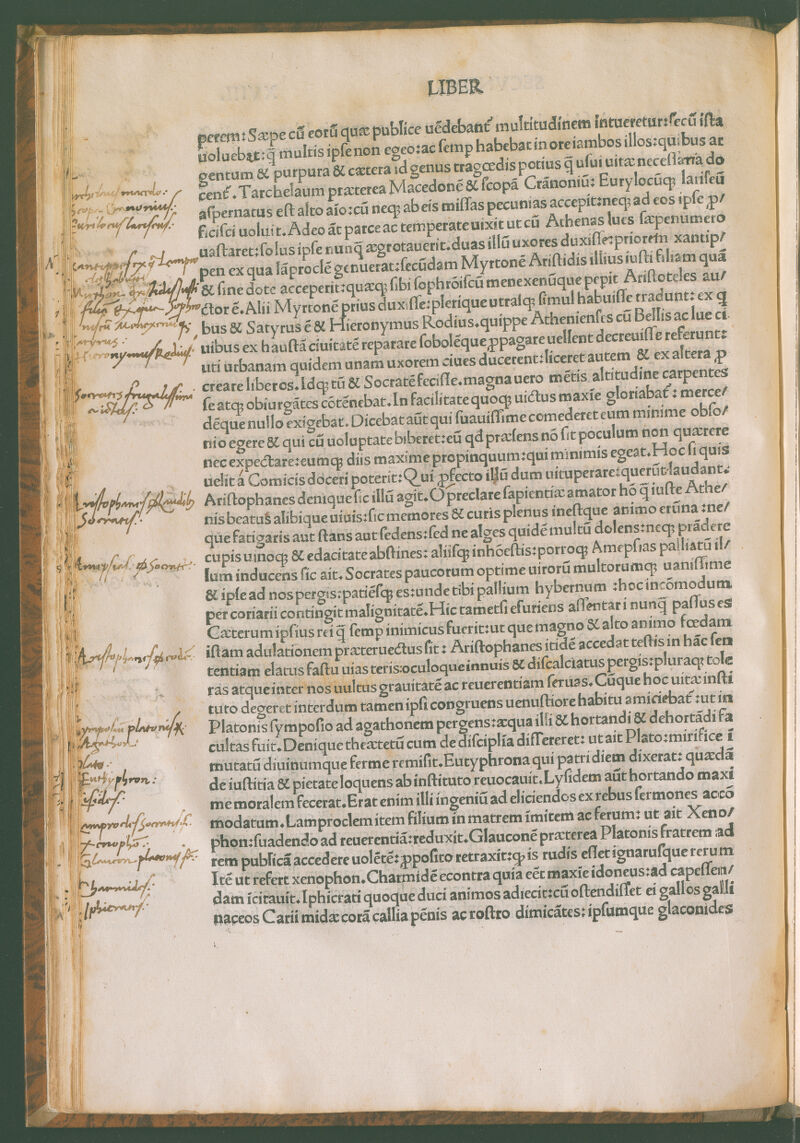 LIBER
perem: Sæpe cũ eorũ quæ publice uẽdebant᷑ multitudinem intueretur: secũ ista
uoluebat: q̃ multis ipse non egeo: ac semp habebat in ore iambos illos: quibus ar
gentum & purpura & cætera id genus tragœdis potius q̃ usui uitæ necessaria do
cent᷑. Tarchelaum præterea Macedonẽ & scopã Crãnoniũ: Eurylocũq; larisseũ
aspernatus est alto aĩo: cũ neq; ab eis missas pecunias accepit: neq; ad eos ipse ꝓ/
ficisci uoluit. Adeo ãt parce ac temperate uixit ut cũ Athenas lues sæpenumero
uastaret: solus ipse nunq̃ ægrotauerit. duas illũ uxores duxisse: priorem xantip/
pen ex qua lãproclẽ genuerat: secũdam Myrtonẽ Aristidis illius iusti filiam quã
& sine dote acceperit: quæq; sibi sophrõiscũ menexenũque pepit Aristoteles au/
ctor ẽ. Alii Myrtonẽ prius duxisse: plerique utralq; simul habuisse tradunt: ex q̃
bus & Satyrus ẽ & Hieronymus Rodius. quippe Athenienses cũ Bellis ac lue ci
uibus ex haustã ciuitatẽ reparare sobolẽque ꝓpagare uellent decreuisse referunt:
uti urbanam quidem unam uxorem ciues ducerent: liceret autem & ex altera ꝓ
creare liberos. Idq; tũ & Socratẽ fecisse. magna uero mẽtis altitudine carpentes
se atq; obiurgãtes cõtẽnebat. In facilitate quoq; uictus maxĩe gloriabat᷑: merce/
dẽque nullo exigebat. Dicebat aũt qui suauissime comederet eum minime obso/
nio egere & qui cũ uoluptate biberet: eũ qd præsens nõ sit poculum non quærere
nec expectare: eumq; diis maxime propinquum: qui minimis egeat. Hoc si quis
uelit ã Comicis doceri poterit: Qui ꝓfecto illũ dum uituperare: querũt laudant:
Aristophanes denique sic illũ agit. O preclare sapientiæ amator hõ q̃ iuste Athe/
nis beatus alibique uiuis: sic memores & curis plenus inestque animo erũna: ne/
que fatigaris aut stans aut sedens: sed ne alges quidẽ multũ dolens: neq; prãdere
cupis uinoq; & edacitate abstines: aliisq; inhõestis: porroq; Amepsias palliatũ il/
lum inducens sic ait. Socrates paucorum optime uirorũ multorumq; uanissime
& ipse ad nos pergis: patiẽsq; es: unde tibi pallium hybernum: hoc incõmodum
per coriarii contingit malignitatẽ. Hic tametsi esuriens assentari nunq̃ passus es
Cæterum ipsius rei q̃ semp inimicus fuerit: ut que magno & alto animo fœdam
istam adulationem præteruectus sit: Aristophanes itidẽ accedat testis in hãc sen
tentiam elatus fastu uias teris: oculoque innuis & discalciatus pergis: pluraq; tole
ras atque inter nos uultus grauitatẽ ac reuerentiam seruas. Cũque hoc uitæ insti
tuto degeret interdum tamen ipsi congruens uenustiore habitu amiciebat᷑: ut in
Platonis symposio ad agathonem pergens: æqua illi & hortandi & dehortãdi fa
cultas fuit. Denique theætetũ cum de disciplĩa differeret: ut ait Plato: mirifice ĩ
mutatũ diuinumque ferme remisit. Eutyphrona qui patri diem dixerat: quædã
de iustitia & pietate loquens ab instituto reuocauit. Lysidem aũt hortando maxi
me moralem fecerat. Erat enim illi ingeniũ ad eliciendos ex rebus sermones accõ
modatum. Lamproclem item filium in matrem ĩmitem ac ferum: ut ait Xeno/
phon: suadendo ad reuerentiã: reduxit. Glauconẽ præterea Platonis fratrem ad
rem publicã accedere uolẽtẽ: ꝓposito retraxit: q; is rudis esset ignarusque rerum
Itẽ ut refert xenophon. Charmidẽ econtra quia eẽt maxĩe idoneus: ad capessen/
dam ĩcitauit. Iphicrati quoque duci animos adiecit: cũ ostendisset ei gallos galli
naceos Carii midæ corã callia pẽnis ac rostro dimicãtes: ipsumque glaconides
Socratis frugalissimi
Aristophanis
Socratis.
platonis
Agathon.
plato.
Euthyphron:
xenophō:
Charmides.
Iphicrates.